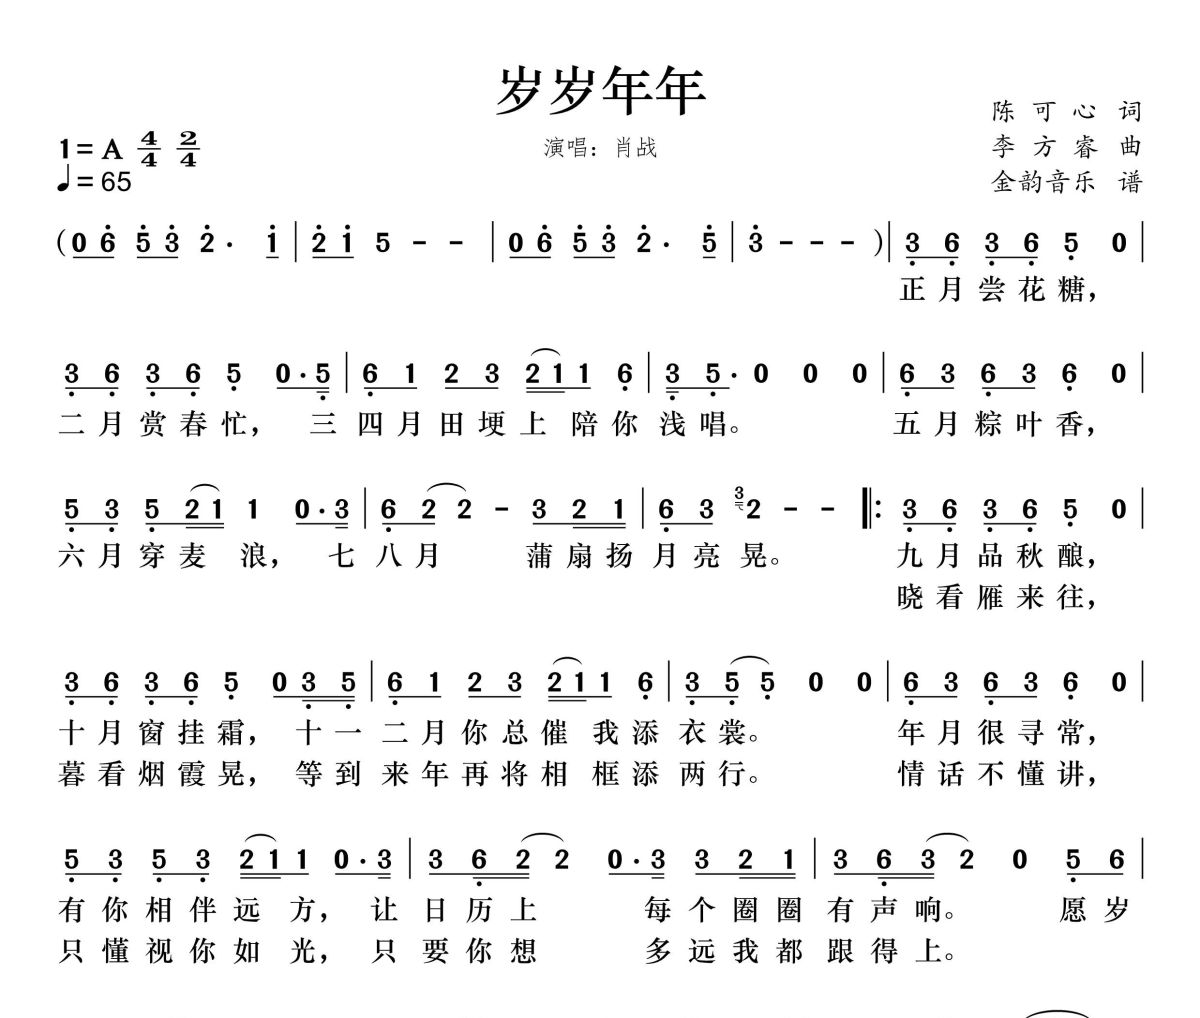 岁岁年年
陈可心 词
1=A 4/4 2/4
演唱：肖战
李方睿 曲
♩=65
金韵音乐 谱
(0 6 5 3 2 · 1 | 2 1 5 - - | 0 6 5 3 2 · 5 | 3 - - - )| 3 6 3 6 5 0 |
正月尝花糖，
3 6 3 6 5 0 · 5 | 6 1 2 3 2 1 1 6 | 3 5 · 0 0 0 | 6 3 6 3 6 0 |
二月赏春忙， 三 四月田埂上 陪你 浅唱。 五月粽叶香，
5 3 5 2 1 1 0 · 3 | 6 2 2 - 3 2 1 | 6 3 3 2 - - ‖: 3 6 3 6 5 0 |
六月穿麦 浪， 七 八月 蒲扇扬 月亮 晃。 九月品秋酿，
晓看雁来往，
3 6 3 6 5 0 3 5 | 6 1 2 3 2 1 1 6 | 3 5 5 0 0 | 6 3 6 3 6 0 |
十月窗挂霜， 十一 二月你总催 我添 衣裳。 年月很寻常，
暮看烟霞晃， 等到 来年再将相 框添 两行。 情话不懂讲，
5 3 5 3 2 1 1 0 · 3 | 3 6 2 2 0 · 3 3 2 1 | 3 6 3 2 0 5 6 |
有你相伴远 方， 让 日历上 每 个圈圈 有声响。 愿岁
只懂视你如 光， 只 要你想 多 远我都 跟得上。